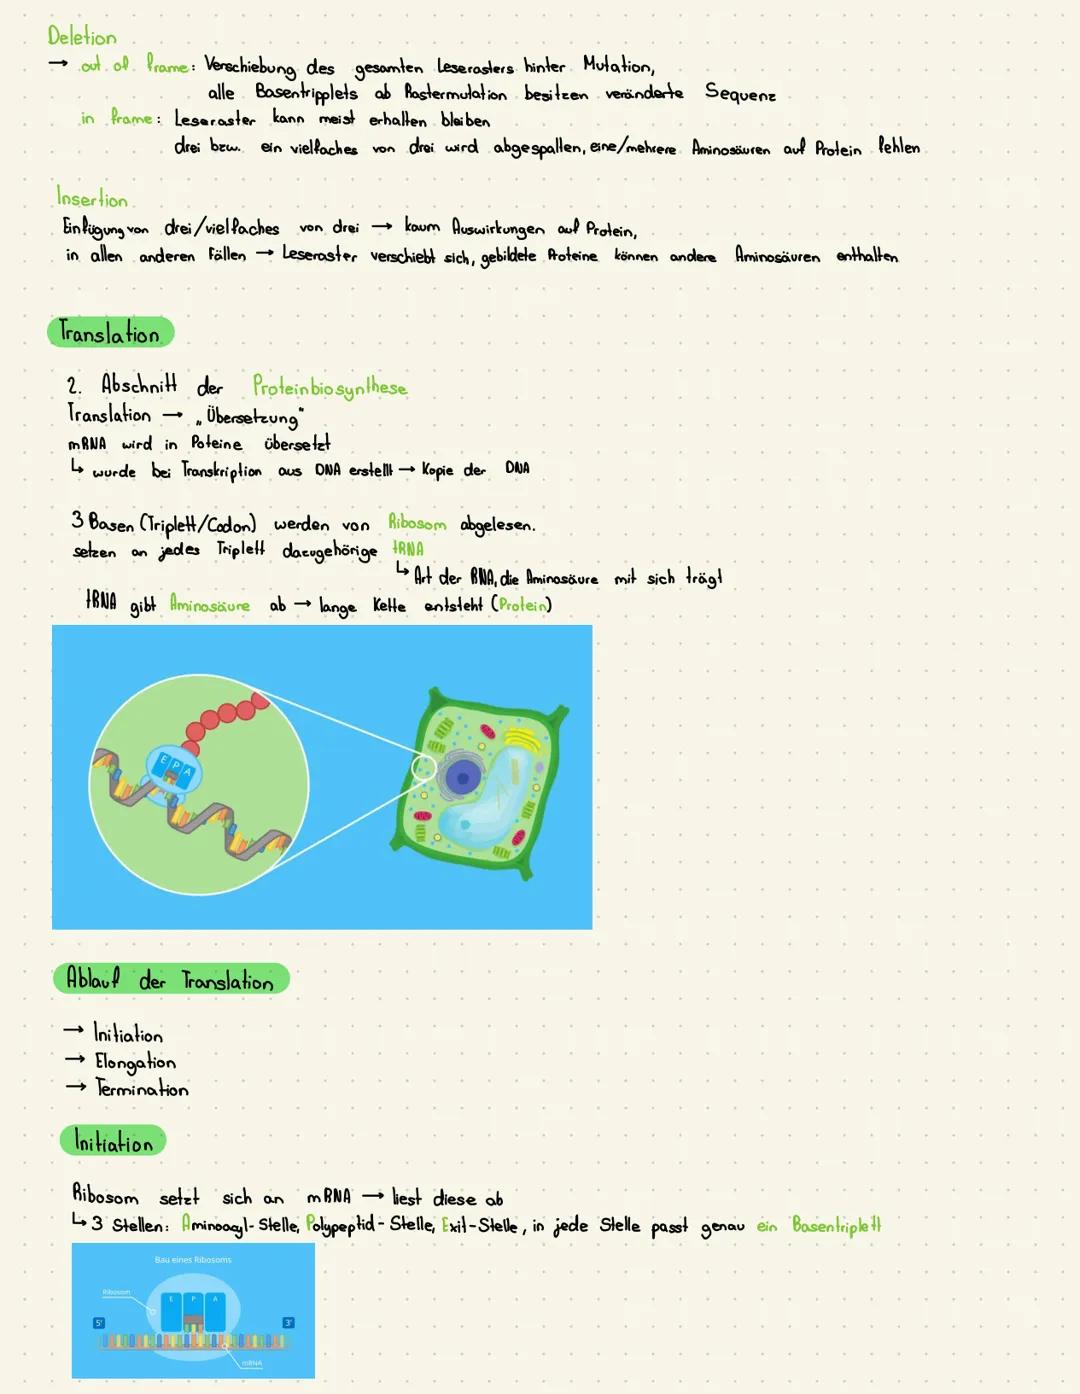 Deletion
→ out of frame: Verschiebung des gesamten Leserasters hinter Mutation,
alle Basentripplets ab Rastermutation besitzen veränderte Sequenz
in frame: Leseraster kann meist erhalten bleiben
drei bzw. ein vielfaches von drei wird abgespallen, eine/mehrere Aminosäuren auf Protein fehlen
Insertion
Einfügung von drei/vielfaches von drei → kaum Auswirkungen auf Protein,
in allen anderen Fällen → Leseraster verschiebt sich, gebildete Proteine können andere Aminosäuren enthalten
Translation
2. Abschnitt der Proteinbiosynthese
Translation → „Übersetzung"
mRNA wird in Poteine übersetzt
↳ wurde bei Transkription aus DNA erstellt → Kopie der DNA
3 Basen (Triplett/Codon) werden von Ribosom abgelesen.
setzen an jedes Triplett dazugehörige tRNA
↳ Art der RNA, die Aminosäure mit sich trägt
tRNA gibt Aminosäure ab → lange Kette entsteht (Protein)
E P A
Ablauf der Translation
→ Initiation
→ Elongation
→ Termination
Initiation
Ribosom setzt sich an mRNA → liest diese ab
↳ 3 Stellen: Aminoacyl-Stelle, Polypeptid-Stelle, Exit-Stelle, in jede Stelle passt genau ein Basentriplett
Bau eines Ribosoms
Ribosom
E P A
5' 3'
mRNA